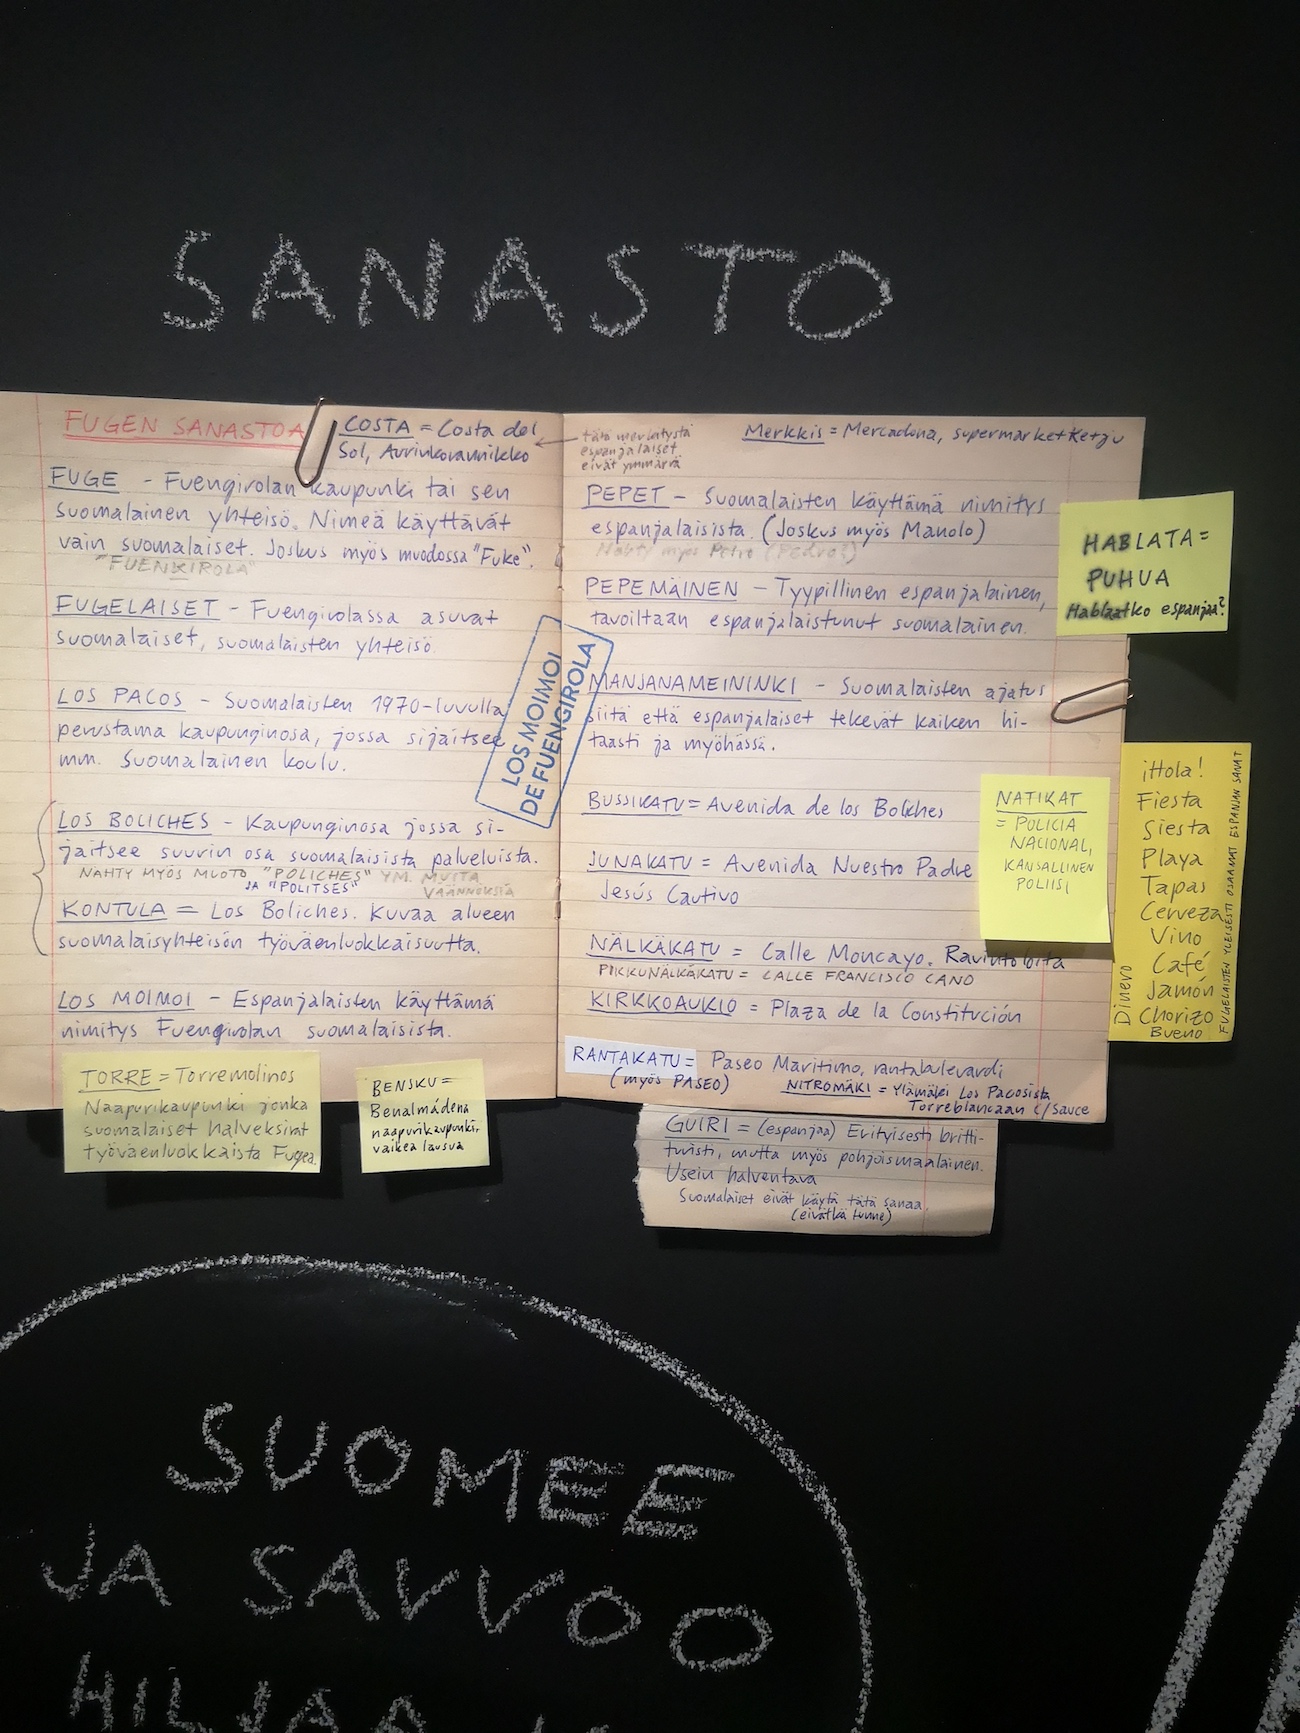 SANASTO
FUGEN SANASTOA
COSTA = Costa del
Sol, Aurinkorannikko
tätä merkitystä
espanjalaiset
eivät ymmärrä
FUGE - Fuengirolan kaupunki tai sen
suomalainen yhteisö. Nimeä käyttävät
vain suomalaiset. Joskus myös muodossa "Fuke".
"FUENKIROLA"
FUGELAISET - Fuengirolassa asuvat
suomalaiset, suomalaisten yhteisö.
LOS PACOS - Suomalaisten 1970-luvulla
perustama kaupunginosa, jossa sijaitsee
mm. Suomalainen koulu.
LOS BOLICHES - Kaupunginosa jossa si-
jaitsee suurin osa suomalaisista palveluista.
NÄHTY MYÖS MUOTO "POLICHES" YM. MUITA
JA "POLITSES" VÄÄNNÖKSIÄ
KONTULA = Los Boliches. Kuvaa alueen
suomalaisyhteisön työväenluokkaisuutta.
LOS MOIMOI - Espanjalaisten käyttämä
nimitys Fuengirolan suomalaisista.
TORRE = Torremolinos
Naapurikaupunki jonka
suomalaiset halveksivat
työväenluokkaista Fugea.
BENSKU =
Benalmádena
naapurikaupunki,
vaikea lausua
LOS MOIMOI
DE FUENGIROLA
Merkkis = Mercadona, supermarketketju
PEPET - Suomalaisten käyttämä nimitys
espanjalaisista. (Joskus myös Manolo)
Nähty myös Petro (Pedro?)
PEPEMÄINEN - Tyypillinen espanjalainen,
tavoiltaan espanjalaistunut suomalainen.
MANJANAMEININKI - Suomalaisten ajatus
siitä että espanjalaiset tekevät kaiken hi-
taasti ja myöhässä.
BUSSIKATU = Avenida de los Boliches
JUNAKATU = Avenida Nuestro Padre
Jesús Cautivo
NÄLKÄKATU = Calle Moncayo. Ravintoloita
PIKKUNÄLKÄKATU = CALLE FRANCISCO CANO
KIRKKOAUKIO = Plaza de la Constitución
RANTAKATU = Paseo Maritimo, rantabulevardi
(myös PASEO)
NITROMÄKI = Ylämäki Los Pacosista
Torreblancaan C/Sauce
GUIRI = (espanjaa) Erityisesti britti-
turisti, mutta myös pohjoismaalainen.
Usein halventava
Suomalaiset eivät käytä tätä sanaa.
(eivätkä tunne)
HABLATA =
PUHUA
Hablaatko espanjaa?
NATIKAT
= POLICIA
NACIONAL,
KANSALLINEN
POLIISI
¡Hola!
Fiesta
Siesta
Playa
Tapas
Cerveza
Vino
Café
Jamón
Chorizo
Bueno
Dinero
FUGELAISTEN YLEISESTI OSAAMAT ESPANJAN SANAT
SUOMEE
JA SAVVOO
HILJAA JA